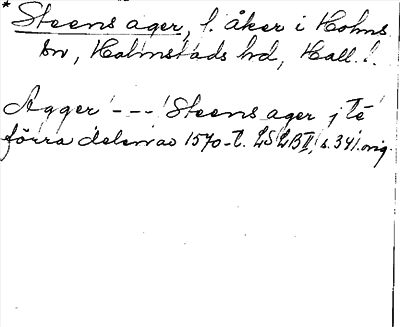 * Steens ager, f. åker i Holms
sn, Halmstads hd, Hall. l.
Agger --- Steens ager j te
förra delen av 1570-t. LSLB II, s. 341. orig.